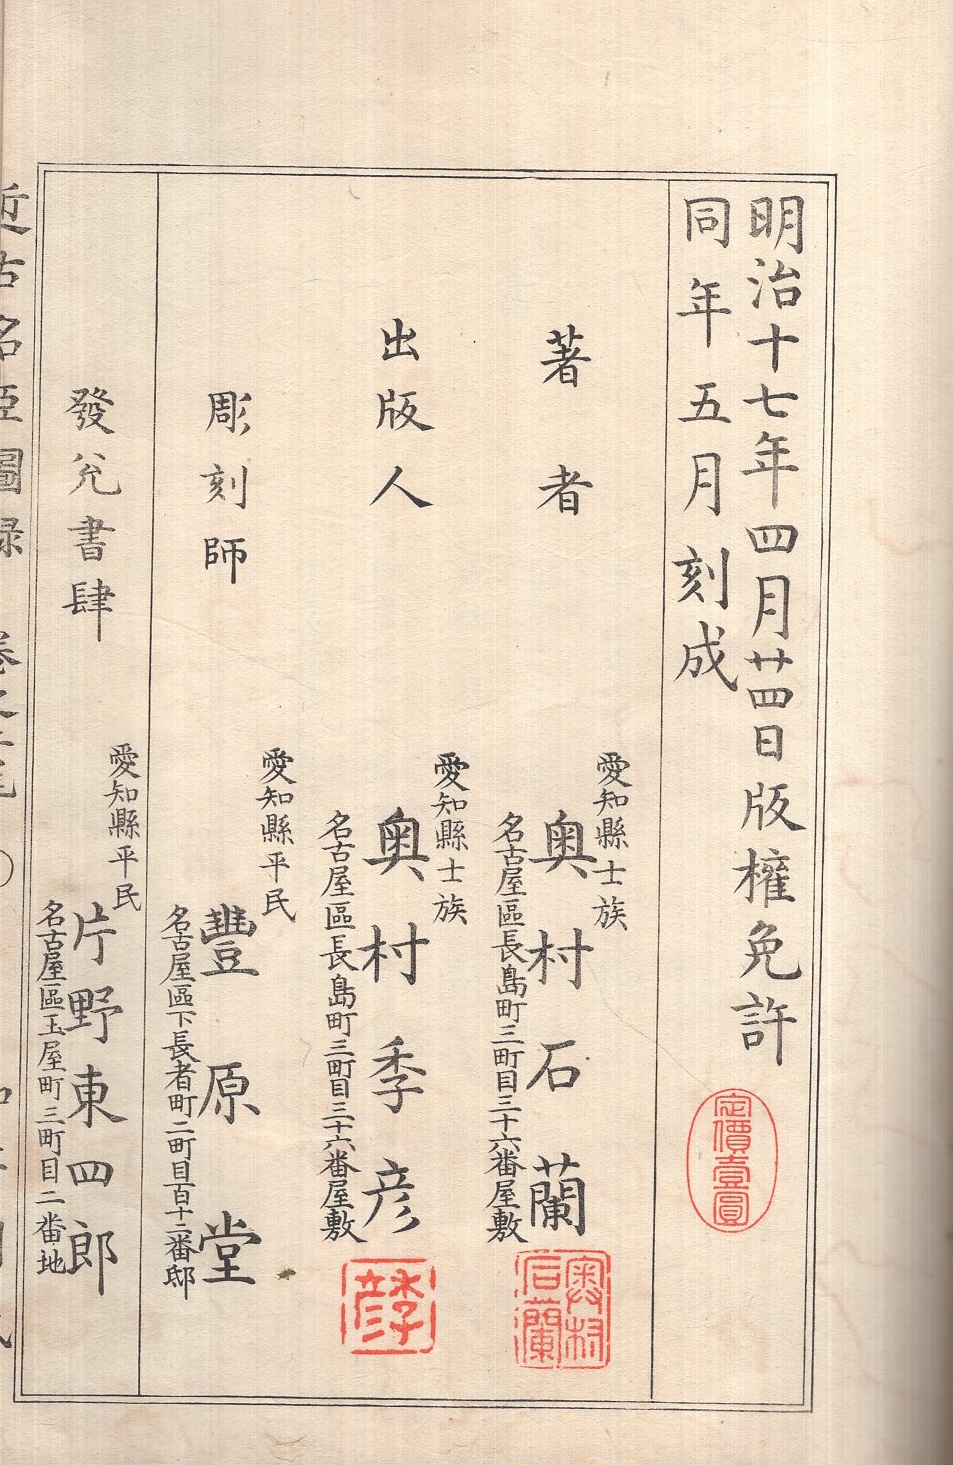 明治十七年四月廿四日版權免許
定價壹圓
同年五月刻成
著者
愛知縣士族
奥村石蘭
名古屋區長島町三町目三十六番屋敷
奥村石蘭
出版人
愛知縣士族
奥村季彦
名古屋區長島町三町目三十六番屋敷
季彦
彫刻師
愛知縣平民
豐原堂
名古屋區下長者町二町目百十二番邸
發兌書肆
愛知縣平民
片野東四郎
名古屋區玉屋町三町目二番地
近古名臣圖録